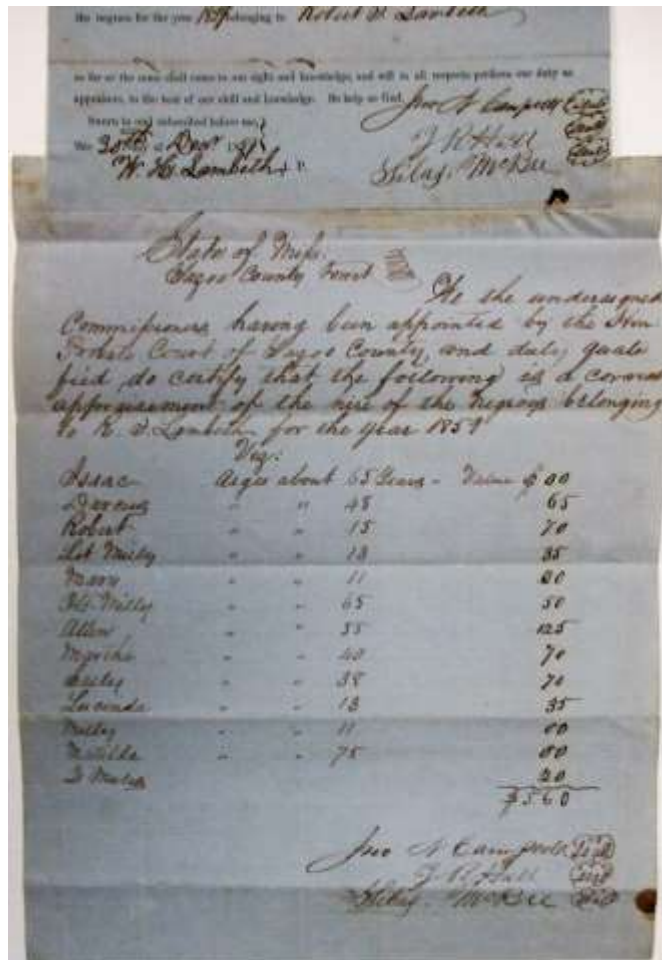 the negroes for the year 1859 belonging to Robert D. Lambeth
so far as the same shall come to our sight and knowledge, and will in all respects perform our duty as
appraisers, to the best of our skill and knowledge. So help us God.
Sworn to and subscribed before me,
the 30th of Decr
Jno N Campbell Seal
J R Hall Seal
W. H. Lambeth J. P.
Silas McBee Seal
State of Miss.
Yazoo County Court
We the undersigned
Commissioners having been appointed by the Hon
Probate Court of Yazoo County, and duly quali
fied, do certify that the following is a correct
appraisement of the hire of the negroes belonging
to R. D. Lambeth for the year 1859
Viz:
Isaac Ages about 65 Years - Value $ 00
" " 48 65
Robert " " 15 70
Let Milly " " 13 35
Mary " " 11 20
Milly " " 65 50
Allen " " 35 125
" " 40 70
" " 38 70
Lucinda " " 13 35
Milly " " 11 00
Matilda " " 75 00
20
$560
Jno N Campbell Seal
J R Hall Seal
Silas McBee Seal